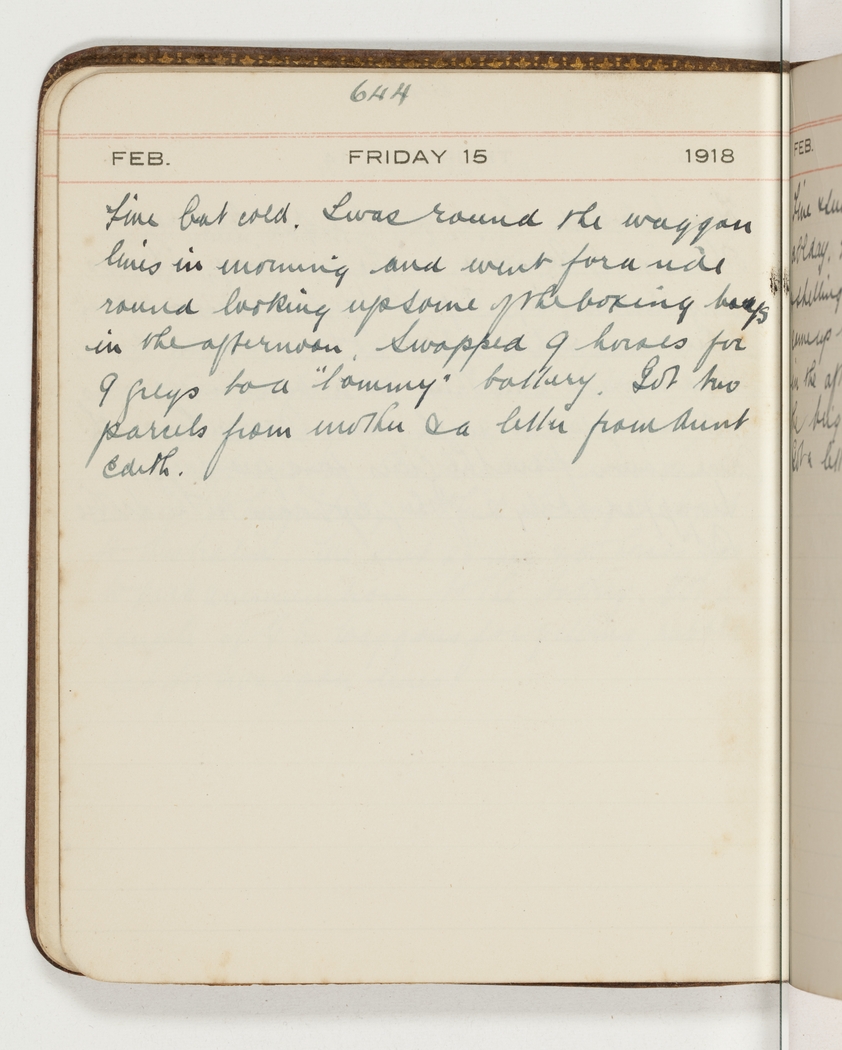 644
FEB. FRIDAY 15 1918
Fine but cold. I was round the waggon
lines in morning and went for a ride
round looking up some of the boxing boys
in the afternoon. Swapped 9 horses for
9 greys to a "Tommy" battery. Got two
parcels from mother & a letter from Aunt
Edith.
FEB.
Fine
shelling
in the